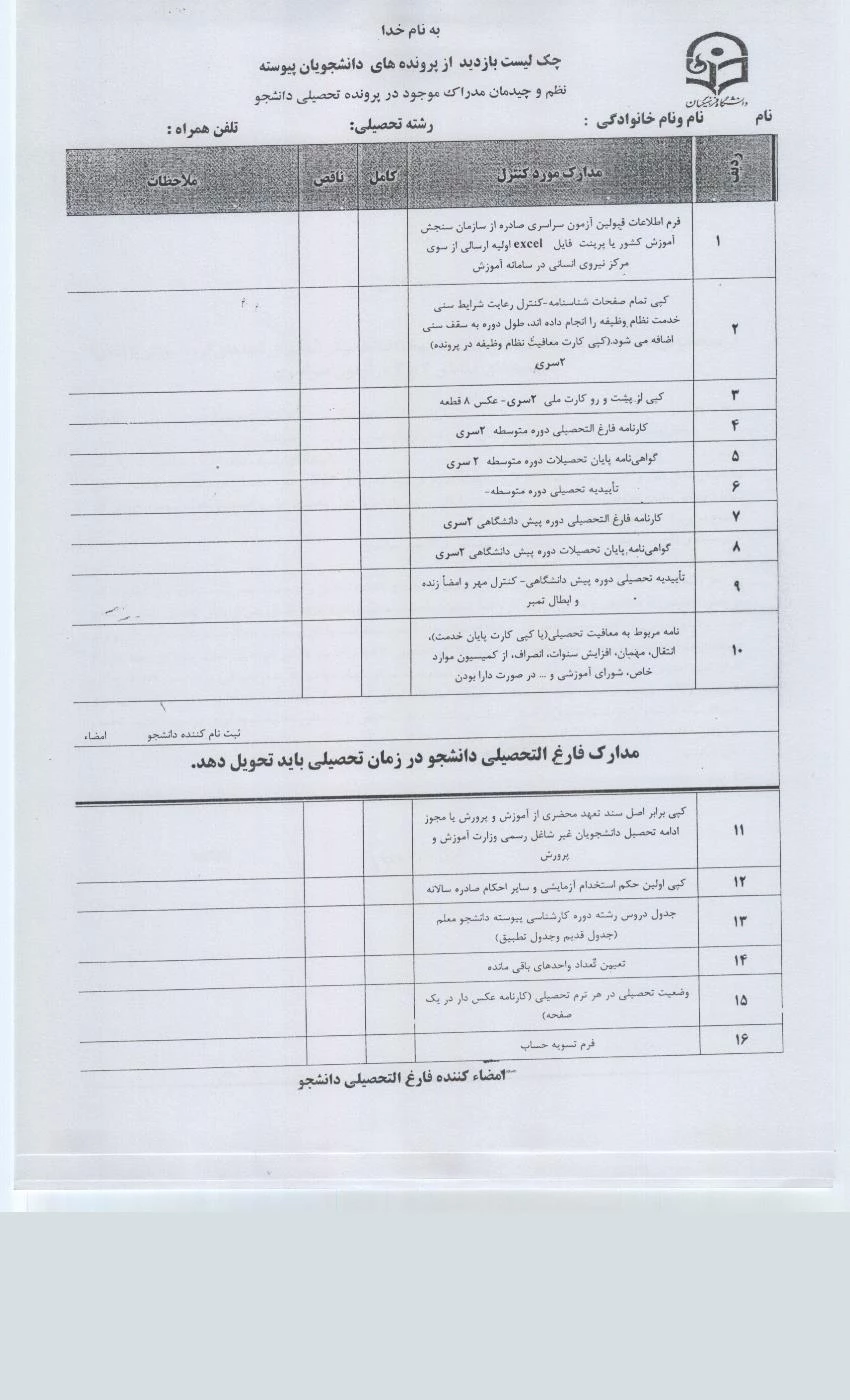 به نام خدا
چک لیست بازدید از پرونده های دانشجویان پیوسته
نظم و چیدمان مدارک موجود در پرونده تحصیلی دانشجو
دانشگاه فرهنگیان
نام نام ونام خانوادگی : رشته تحصیلی: تلفن همراه :
ردیف مدارک مورد کنترل کامل ناقص ملاحظات
۱ فرم اطلاعات قبولین آزمون سراسری صادره از سازمان سنجش
آموزش کشور یا پرینت فایل excel اولیه ارسالی از سوی
مرکز نیروی انسانی در سامانه آموزش
۲ کپی تمام صفحات شناسنامه-کنترل رعایت شرایط سنی
خدمت نظام وظیفه را انجام داده اند، طول دوره به سقف سنی
اضافه می شود.(کپی کارت معافیت نظام وظیفه در پرونده)
۲سری
۳ کپی از پشت و رو کارت ملی ۲سری- عکس ۸ قطعه
۴ کارنامه فارغ التحصیلی دوره متوسطه ۲سری
۵ گواهی‌نامه پایان تحصیلات دوره متوسطه ۲ سری
۶ تأییدیه تحصیلی دوره متوسطه-
۷ کارنامه فارغ التحصیلی دوره پیش دانشگاهی ۲سری
۸ گواهی‌نامه پایان تحصیلات دوره پیش دانشگاهی ۲سری
۹ تأییدیه تحصیلی دوره پیش دانشگاهی- کنترل مهر و امضأ زنده
و ابطال تمبر
۱۰ نامه مربوط به معافیت تحصیلی(یا کپی کارت پایان خدمت)،
انتقال، مهمان، افزایش سنوات، انصراف، از کمیسیون موارد
خاص، شورای آموزشی و ... در صورت دارا بودن
ثبت نام کننده دانشجو امضاء
مدارک فارغ التحصیلی دانشجو در زمان تحصیلی باید تحویل دهد.
۱۱ کپی برابر اصل سند تعهد محضری از آموزش و پرورش یا مجوز
ادامه تحصیل دانشجویان غیر شاغل رسمی وزارت آموزش و
پرورش
۱۲ کپی اولین حکم استخدام آزمایشی و سایر احکام صادره سالانه
۱۳ جدول دروس رشته دوره کارشناسی پیوسته دانشجو معلم
(جدول قدیم وجدول تطبیق)
۱۴ تعیین تعداد واحدهای باقی مانده
۱۵ وضعیت تحصیلی در هر ترم تحصیلی (کارنامه عکس دار در یک
صفحه)
۱۶ فرم تسویه حساب
امضاء کننده فارغ التحصیلی دانشجو